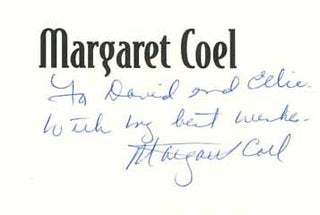 Margaret Coel
To David and Ellie.
With my best wishes.
Margaret Coel